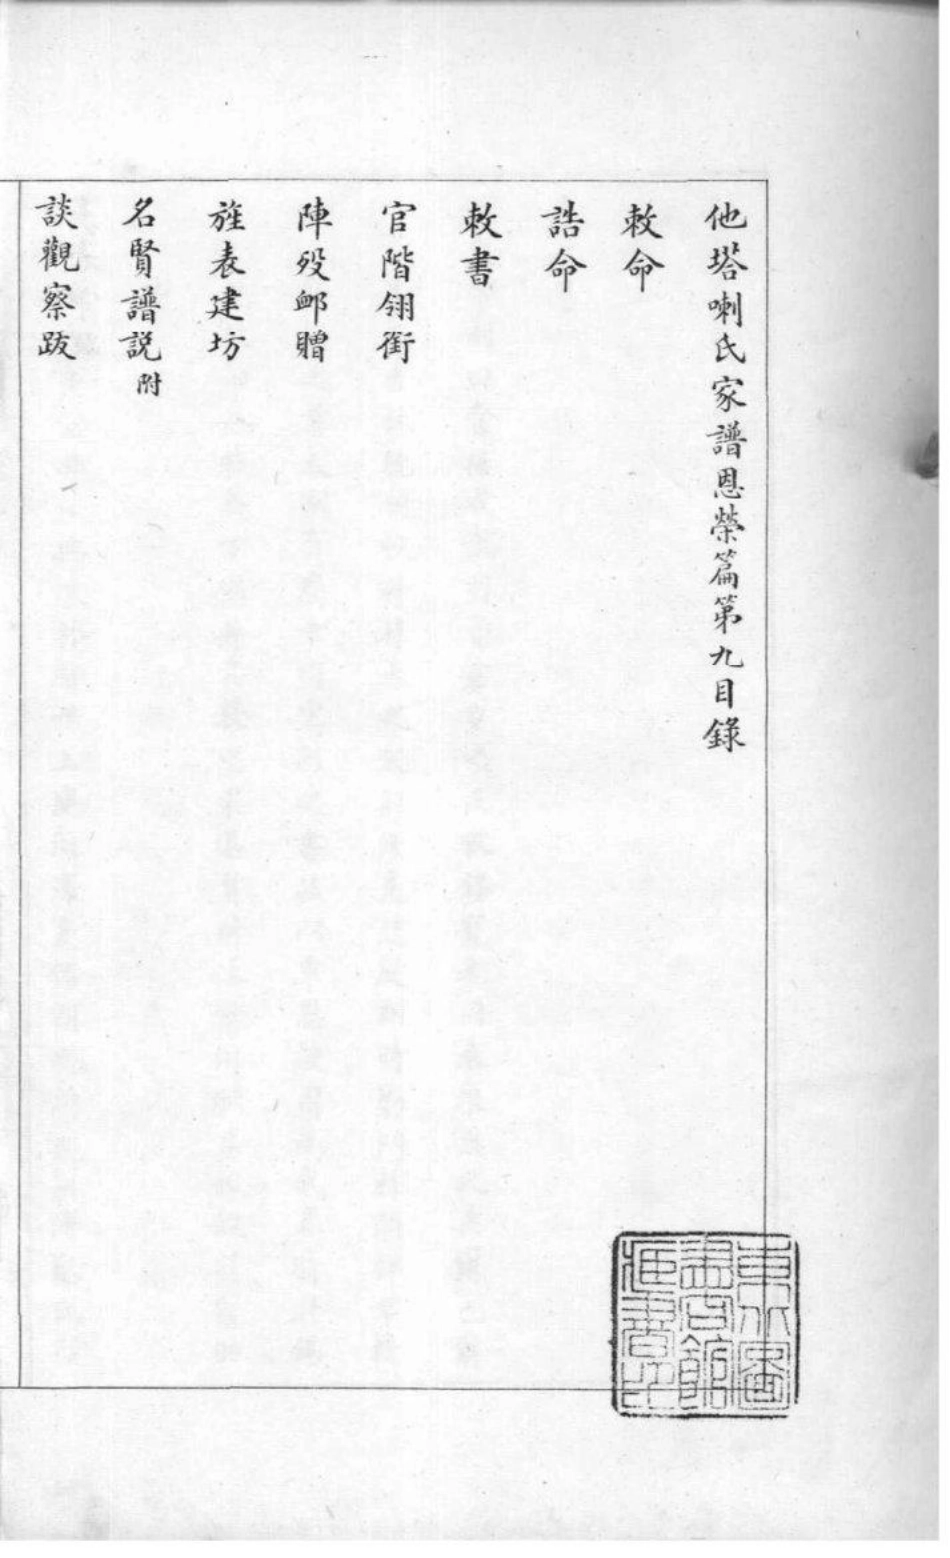 他塔喇氏家譜恩榮篇第九目錄
敕命
誥命
敕書
官階翎銜
陣歿卹贈
旌表建坊
名賢譜説附
談觀察跋
東北圖
書館
藏書印